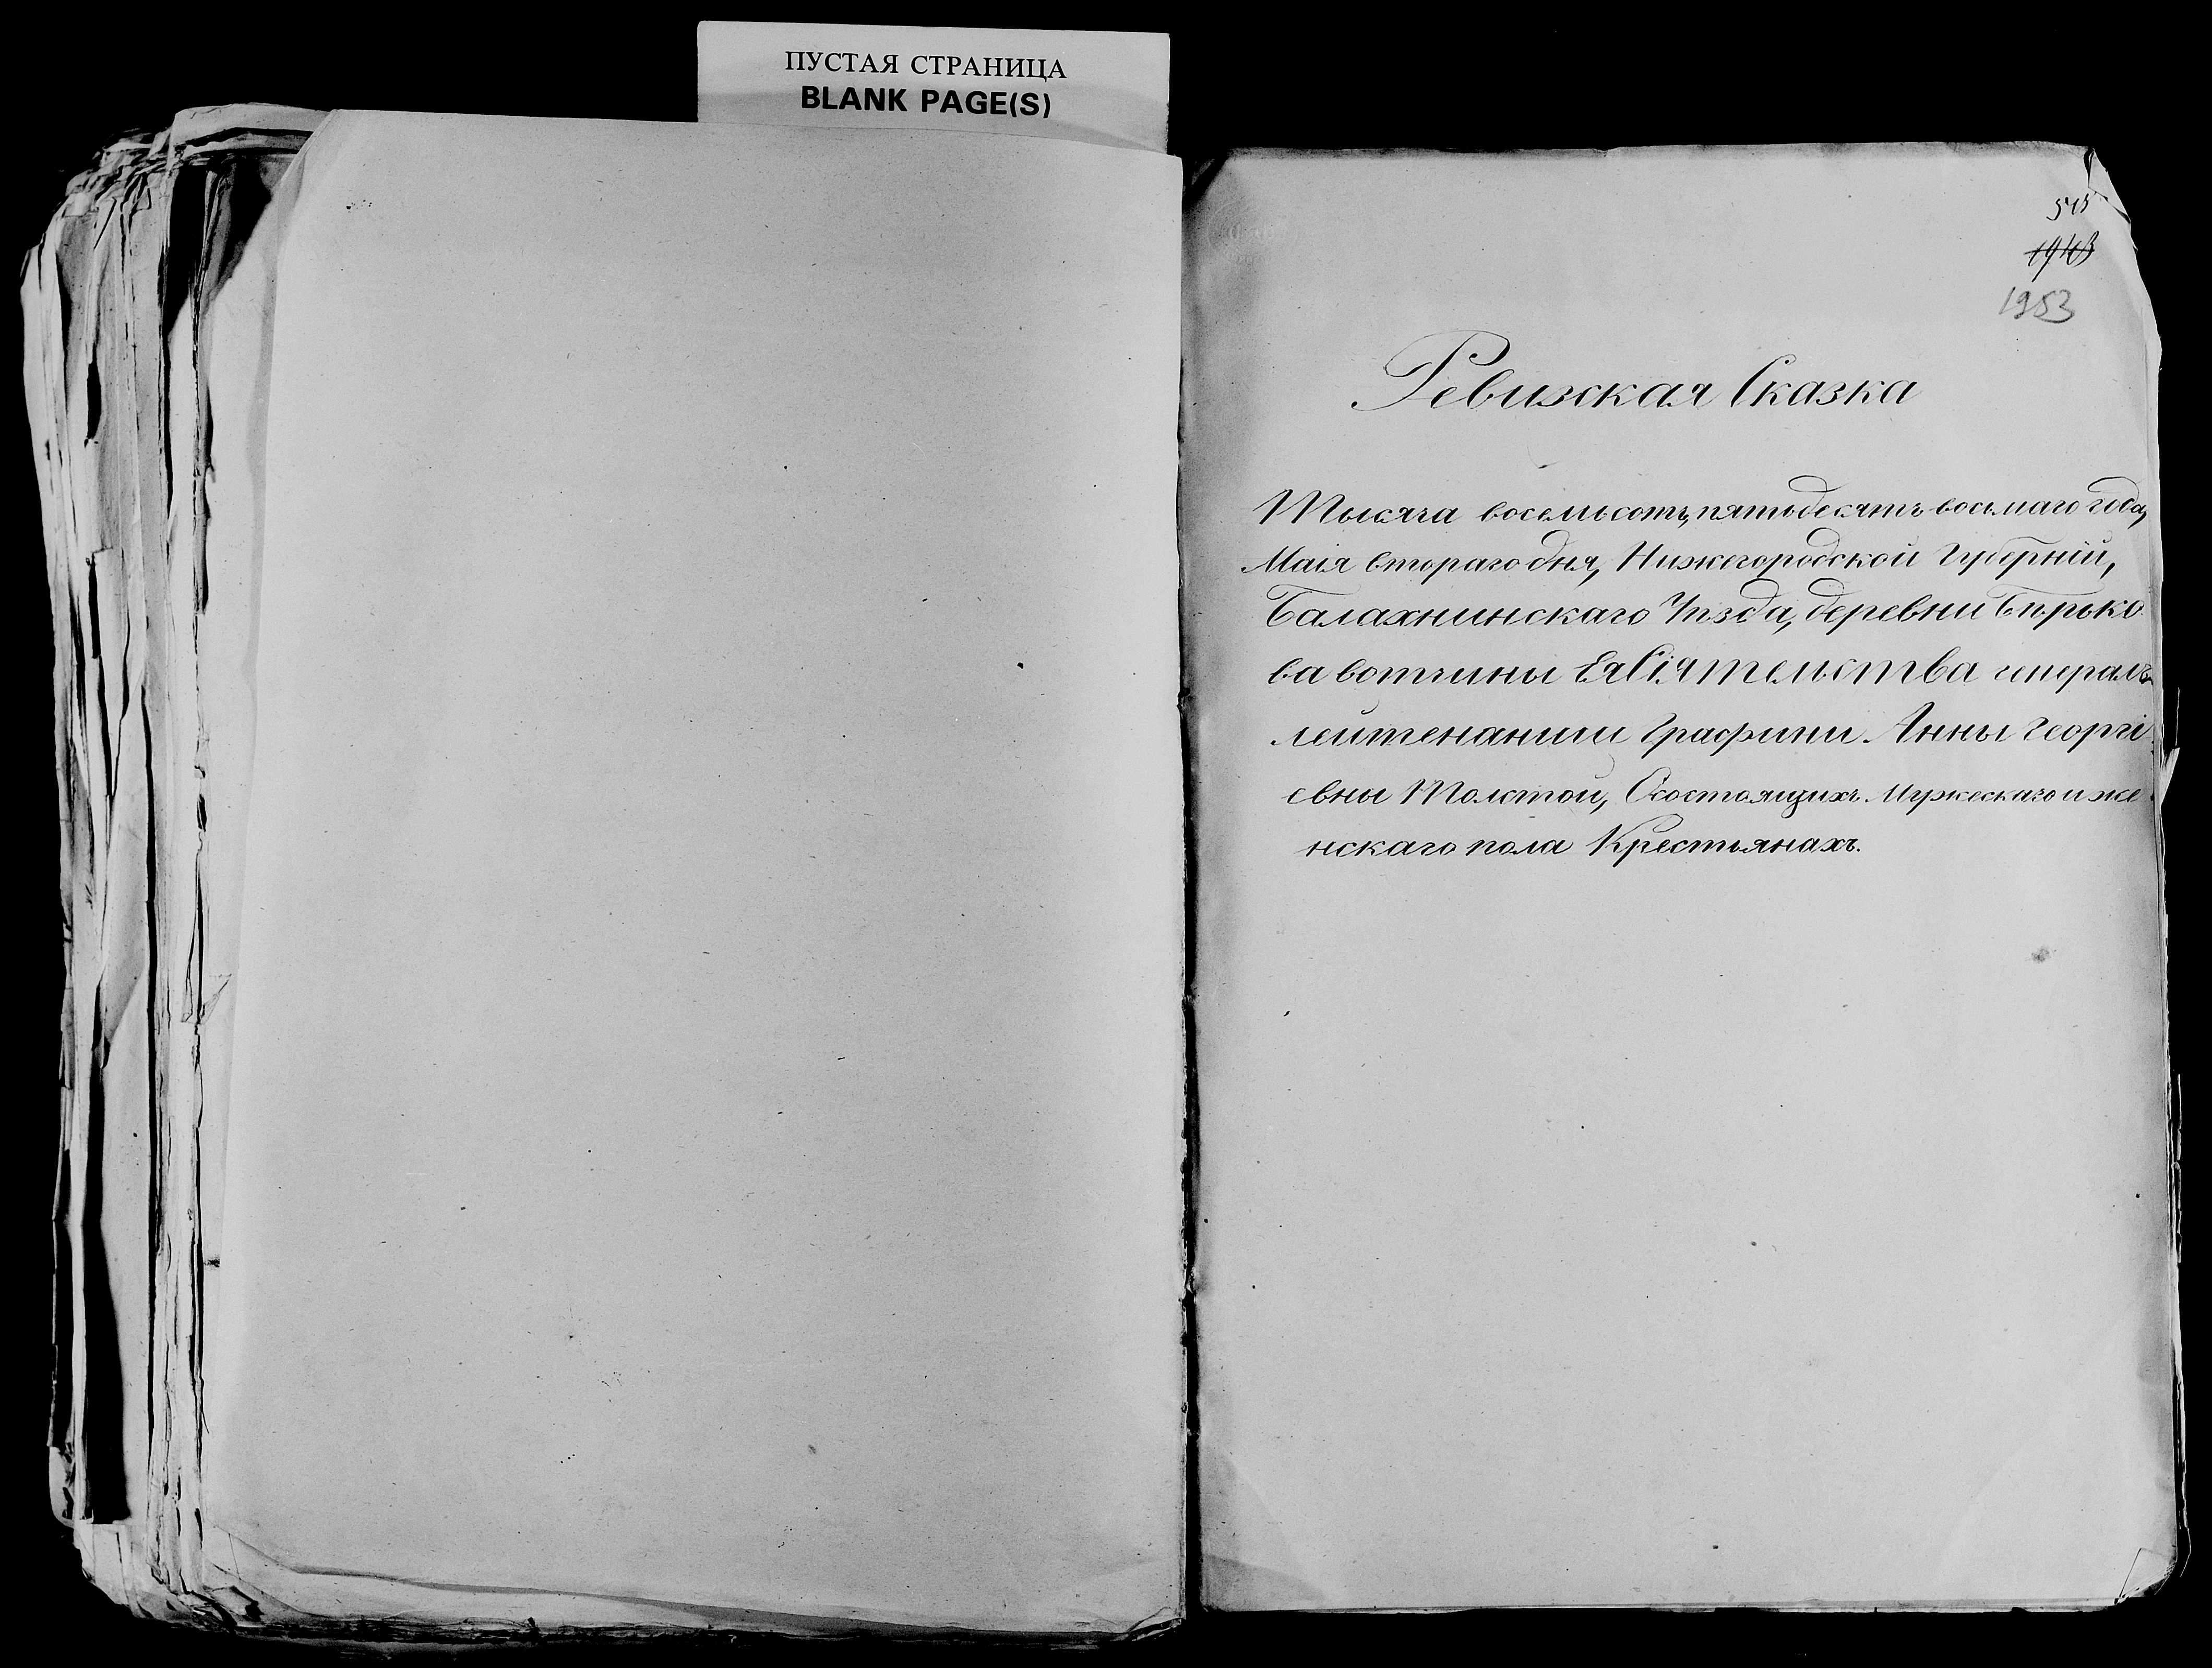 ПУСТАЯ СТРАНИЦА
BLANK PAGE(S)
545
1943
1953
Ревизская Сказка
Тысяча восемьсотъ, пятьдесятъ восьмаго года,
Маія втораго дня, Нижегородской Губерніи,
Балахнинскаго Уѣзда, деревни Бирько
ва вотчины Ея Сіятельства генералъ
лейтенанши Графини Анны Георгі
евны Толстой, О состоящихъ Мужескаго и же
нскаго пола Крестьянахъ.